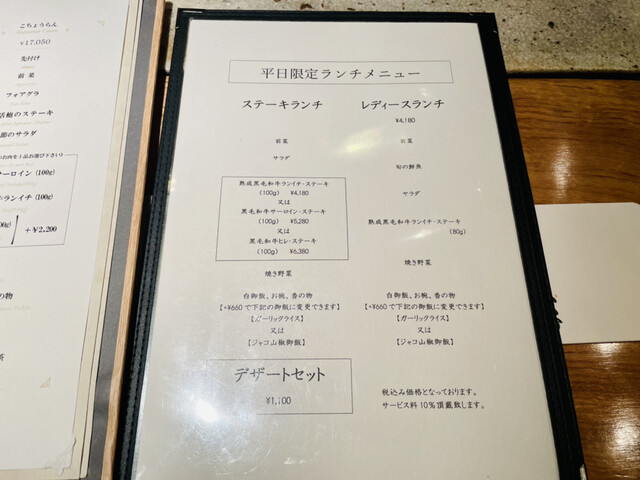 こちょうらん
¥17,050
先付け
前菜
フォアグラ
活鮑のステーキ
節のサラダ
サーロイン (100g)
ランイチ (100g)
00g)
+¥2,200
の物
平日限定ランチメニュー
ステーキランチ
前菜
サラダ
熟成黒毛和牛ランイチ・ステーキ
(100g) ¥4,180
又は
黒毛和牛サーロイン・ステーキ
(100g) ¥5,280
又は
黒毛和牛ヒレ・ステーキ
(100g) ¥6,380
焼き野菜
白御飯、お椀、香の物
【+¥660で下記の御飯に変更できます】
【ガーリックライス】
又は
【ジャコ山椒御飯】
デザートセット
¥1,100
レディースランチ
¥4,180
前菜
旬の鮮魚
サラダ
熟成黒毛和牛ランイチ・ステーキ
(80g)
焼き野菜
白御飯、お椀、香の物
【+¥660で下記の御飯に変更できます】
【ガーリックライス】
又は
【ジャコ山椒御飯】
税込み価格となっております。
サービス料10%頂戴致します。